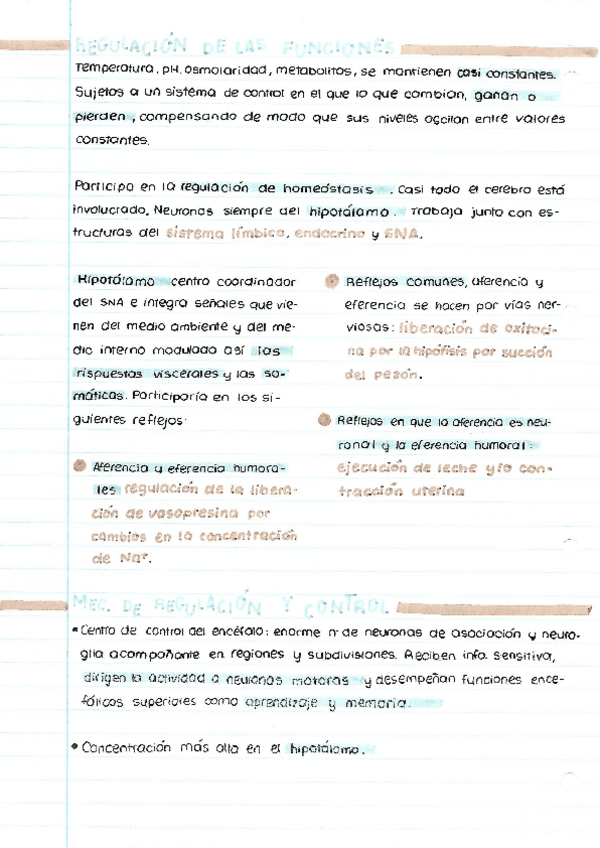 REGULACIÓN DE LAS FUNCIONES
Temperatura, pH, osmolaridad, metabolitos, se mantienen casi constantes.
Sujetos a un sistema de control en el que lo que cambian, ganan o
pierden, compensando de modo que sus niveles oscilan entre valores
constantes.
Participa en la regulación de homeóstasis. Casi todo el cerebro está
involucrado. Neuronas siempre del hipotálamo. Trabaja junto con es-
tructuras del sistema límbico, endocrino y SNA.
Hipotálamo centro coordinador
del SNA e integra señales que vie-
nen del medio ambiente y del me-
dio interno modulado así las
rispuestas viscerales y las so-
máticas. Participaría en los si-
guientes reflejos:
Aferencia y eferencia humora-
les regulación de la libera-
ción de vasopresina por
cambios en la concentración
de Na⁺.
Reflejos comunes, aferencia y
eferencia se hacen por vías ner-
viosas: liberación de oxitoci-
na por la hipófisis por succión
del pezón.
Reflejos en que la aferencia es neu-
ronal y la eferencia humoral:
ejecución de leche y/o con-
tracción uterina
MEC. DE REGULACIÓN Y CONTROL
• Centro de control del encéfalo: enorme n° de neuronas de asociación y neuro-
glia acompañante en regiones y subdivisiones. Reciben info. sensitiva,
dirigen la actividad a neuronas motoras y desempeñan funciones ence-
fálicos superiores como aprendizaje y memoria.
• Concentración más alta en el hipotálamo.